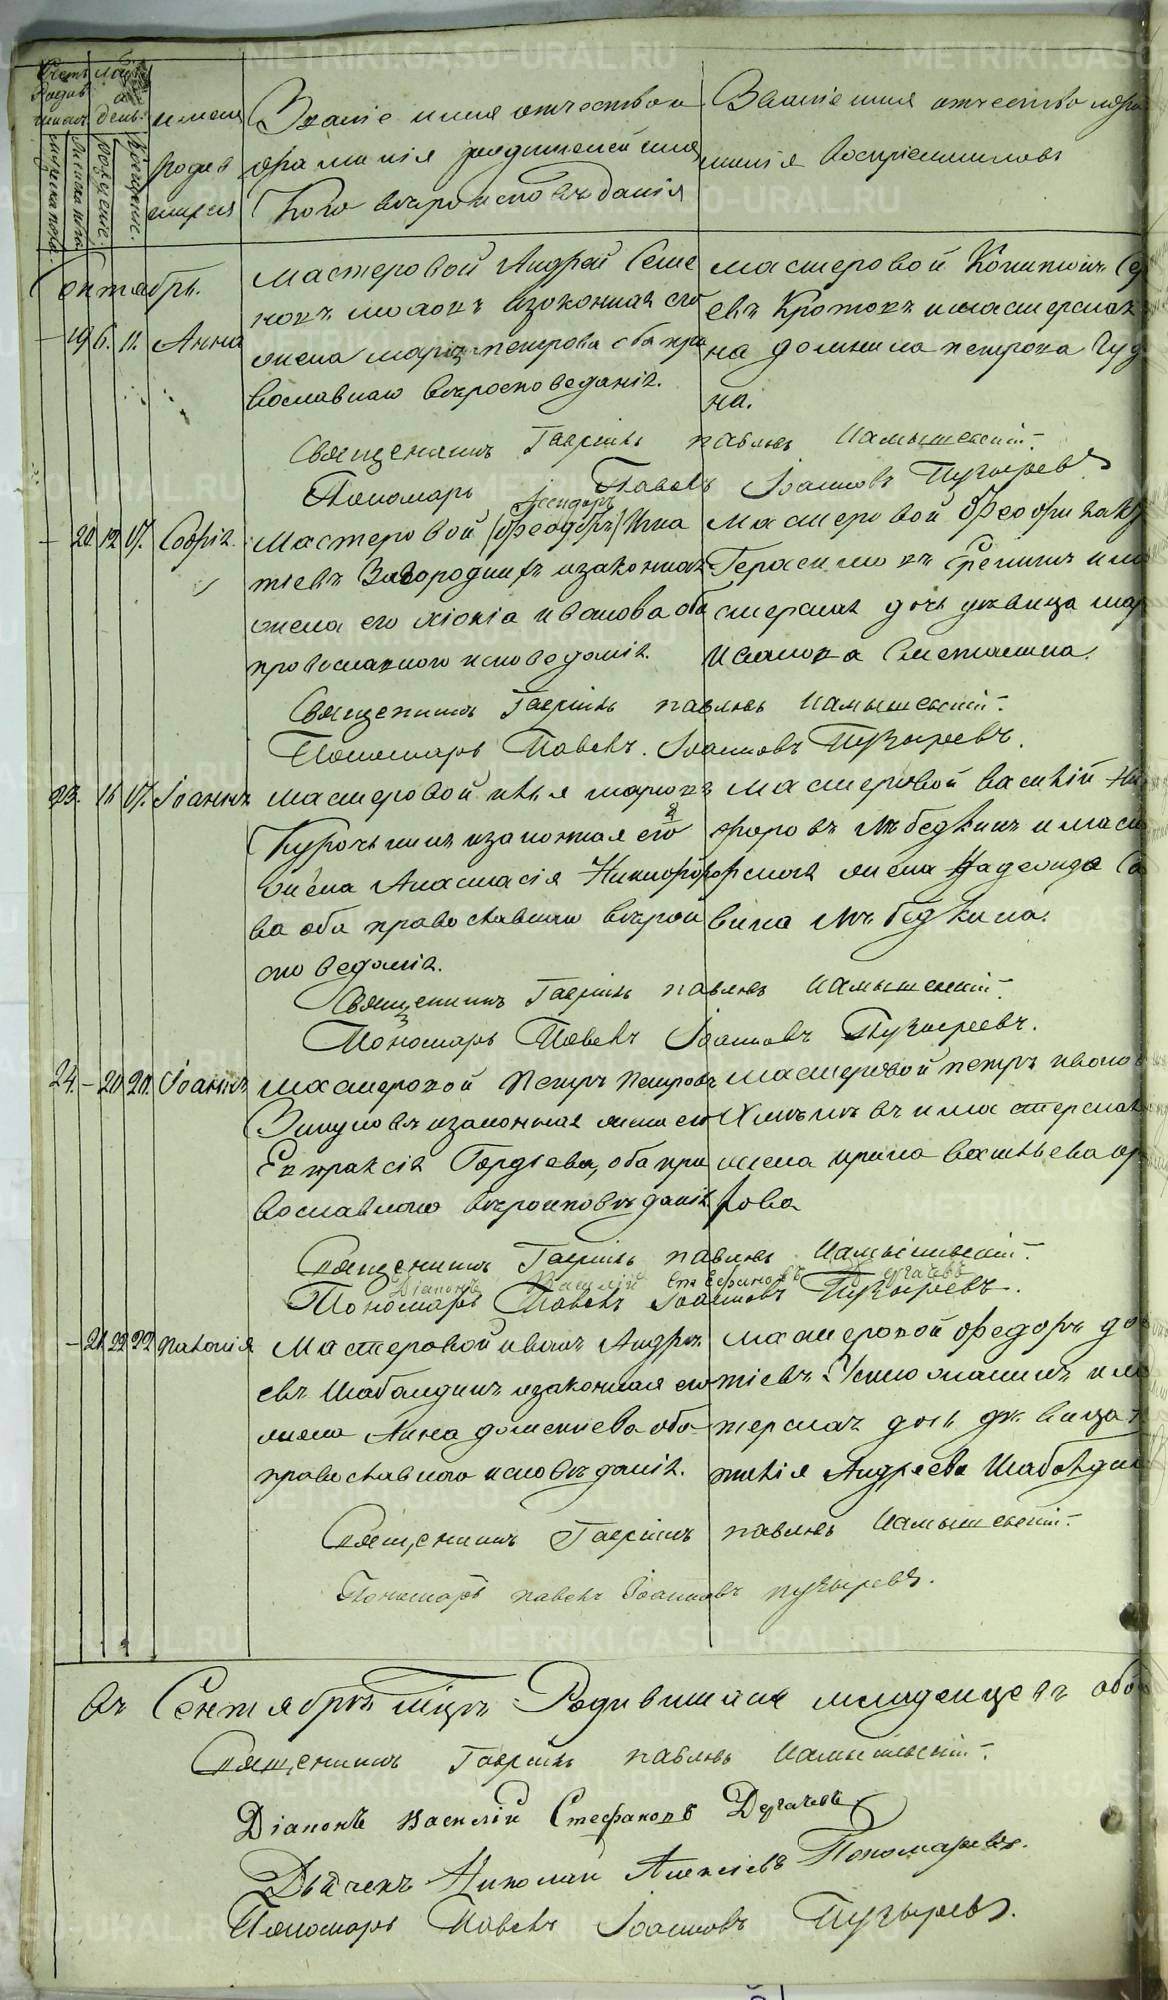 METRIKI.GASO-URAL.RU
имена
родив
шихся
Званіе имя отчество и
фамилія родителей и
Кого вѣроисповѣданія
Званіе имя отчество и фа
милія воспріемниковъ
Рожденіе.
Крещеніе.
Октябрь.
19 6. 11. Анна
Мастеровой Андрей Семе
и законная его
жена Марія Петрова оба пра
вославнаго вѣроисповеданія.
Мастеровой
евъ Кротовъ и мастерская
Петрова
на.
Священникъ Гавріилъ Павловъ Камышевскій.
Пономарь Павелъ Іоанновъ Пузыревъ
20 12 17. Софія.
Исидоръ
Мастеровой (Феодоръ) Игна
тіевъ Завородинъ и законная
жена его Хіонія Иванова оба
православнаго исповеданія.
Мастеровой
Герасимовъ и ма
стерская дочь дѣвица Мар
Иванова Сметанина.
Священникъ Гавріилъ Павловъ Камышевскій.
Пономарь Павелъ Іоанновъ Пузыревъ.
23. 16 17. Іоаннъ
Мастеровой Илья Марков
Курочкинъ и законная его
жена Анастасія Никифоро
ва оба православнаго вѣрои
споведанія.
Мастеровой Василій Ни
форовъ Лѣбедкинъ и маст
ерская жена Надежда Са
вина Лѣбедкина.
Священникъ Гавріилъ Павловъ Камышевскій.
Пономарь Павелъ Іоанновъ Пузыревъ.
24. – 20 20. Іоаннъ
Мастеровой Петръ Петровъ
и законная жена его
Евпраксія Гордѣева, оба пра
вославнаго вѣроисповѣданія
Мастеровой Петръ Ивано
и мастерская
жена Ирина Васильева
Священникъ Гавріилъ Павловъ Камышевскій.
Діаконъ Василій Стефановъ Дерчачевъ
Пономарь Павелъ Іоанновъ Пузыревъ.
– 21 22 22 Паконія
Мастеровой Иванъ Андре
евъ Шабалдинъ и законная его
жена Анна Дометіева оба
православнаго исповѣданія.
Мастеровой Федоръ До
тіевъ и ма
терская дочь дѣвица
Андреева Шабалди
Священникъ Гавріилъ Павловъ Камышевскій.
Пономарь Павелъ Іоанновъ Пузыревъ.
Въ Сентябрѣ мцѣ Родившихся младенцевъ обо
Священникъ Гавріилъ Павловъ Камышевскій.
Діаконъ Василій Стефановъ Дерчачевъ
Дьячекъ Николай Алексіевъ Пономаревъ.
Пономарь Павелъ Іоанновъ Пузыревъ.